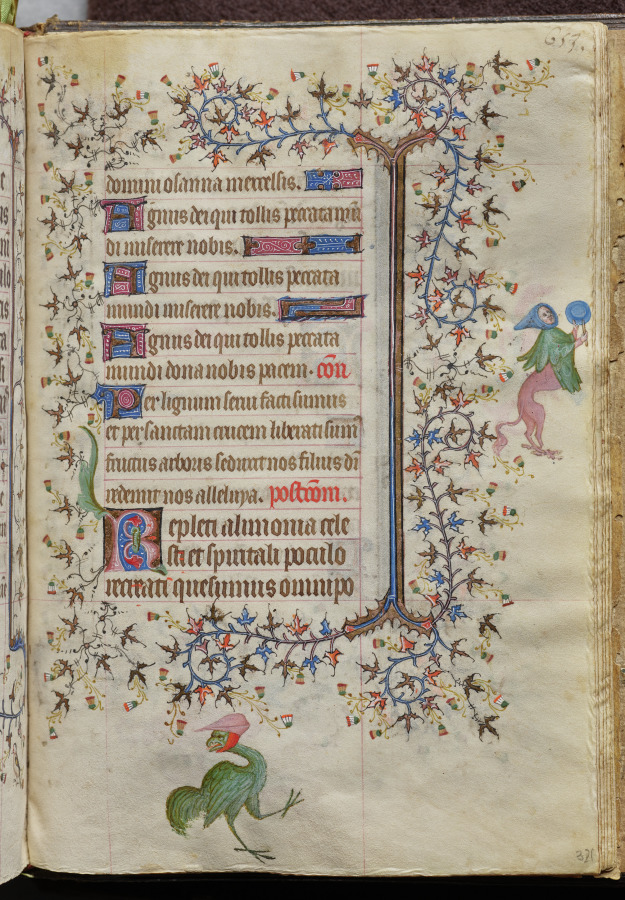 657.
domini osanna inexcelsis.
Agnus dei qui tollis peccata mun
di miserere nobis.
Agnus dei qui tollis peccata
mundi miserere nobis.
Agnus dei qui tollis peccata
mundi dona nobis pacem. com
Per lignum serui facti sumus
et per sanctam crucem liberati sum
fructus arboris seduxit nos filius di
redemit nos alleluya. postcom.
Repleti alimonia cele
sti et spiritali poculo
recreati quesumus omnipo